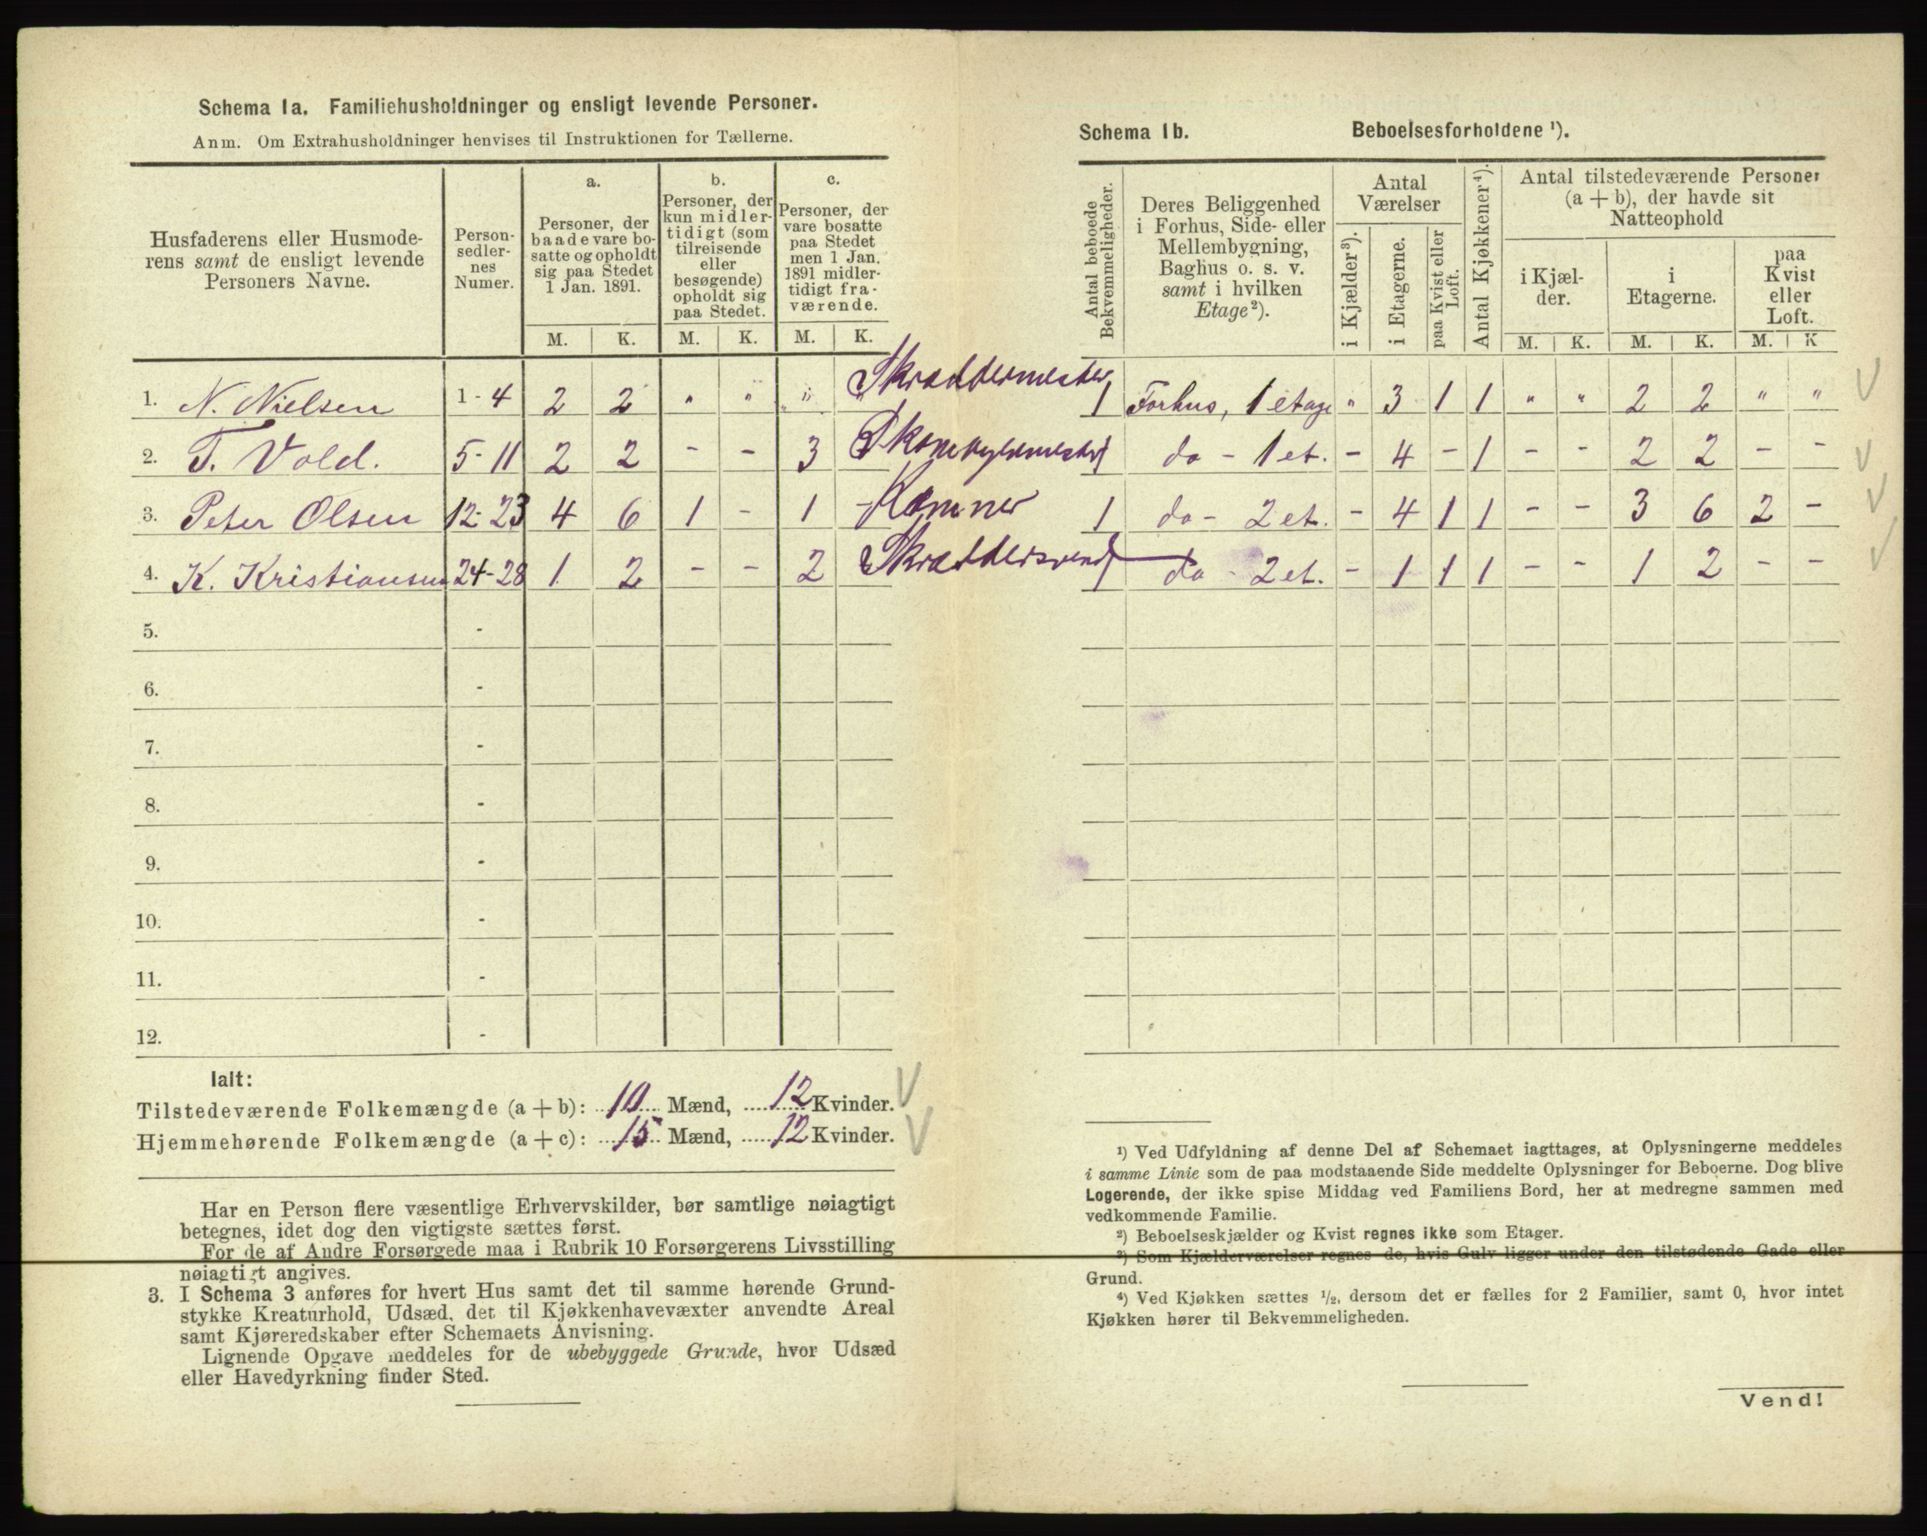 Schema 1a. Familiehusholdninger og ensligt levende Personer.
Anm. Om Extrahusholdninger henvises til Instruktionen for Tællerne.
Husfaderens eller Husmode-
rens samt de ensligt levende
Personers Navne.
Person-
sedler-
nes
Numer.
a.
Personer, der
baade vare bo-
satte og opholdt
sig paa Stedet
1 Jan. 1891.
b.
Personer, der
kun midler-
tidigt (som
tilreisende
eller
besøgende)
opholdt sig
paa Stedet.
c.
Personer, der
vare bosatte
paa Stedet
men 1 Jan.
1891 midler-
tidigt fra-
værende.
M. K. M. K. M. K.
1. N. Nielsen 1-4 2 2 " " " " Skræddermester
2. T. Vold. 5-11 2 2 - - 3
3. Peter Olsen 12-23 4 6 1 - 1 - Kæmner
4. K. Kristiansen 24-28 1 2 - - 2 Skræddersvend
5. -
6. -
7. -
8. -
9. -
10. -
11. -
12. -
Ialt:
Tilstedeværende Folkemængde (a + b): 10 Mænd, 12 Kvinder.
Hjemmehørende Folkemængde (a + c): 15 Mænd, 12 Kvinder.
Har en Person flere væsentlige Erhvervskilder, bør samtlige nøiagtigt
betegnes, idet dog den vigtigste sættes først.
For de af Andre Forsørgede maa i Rubrik 10 Forsørgerens Livsstilling
nøiagtigt angives.
3. I Schema 3 anføres for hvert Hus samt det til samme hørende Grund-
stykke Kreaturhold, Udsæd, det til Kjøkkenhavevæxter anvendte Areal
samt Kjøreredskaber efter Schemaets Anvisning.
Lignende Opgave meddeles for de ubebyggede Grunde, hvor Udsæd
eller Havedyrkning finder Sted.
Schema 1b. Beboelsesforholdene ¹).
Antal beboede
Bekvemmeligheder.
Deres Beliggenhed
i Forhus, Side- eller
Mellembygning,
Baghus o. s. v.
samt i hvilken
Etage²).
Antal
Værelser
i Kjælder³).
i Etagerne.
paa Kvist eller
Loft.
Antal Kjøkkener⁴).
Antal tilstedeværende Personer
(a + b), der havde sit
Natteophold
i Kjæl-
der.
i
Etagerne.
paa
Kvist
eller
Loft.
M. K. M. K. M. K
1 Forhus, 1 etage " 3 1 1 " " 2 2 " "
1 do - 1 et. - 4 - 1 - - 2 2 - -
1 do - 2 et. - 4 1 1 - - 3 6 2 -
1 do - 2 et. - 1 1 1 - - 1 2 - -
¹) Ved Udfyldning af denne Del af Schemaet iagttages, at Oplysningerne meddeles
i samme Linie som de paa modstaaende Side meddelte Oplysninger for Beboerne. Dog blive
Logerende, der ikke spise Middag ved Familiens Bord, her at medregne sammen med
vedkommende Familie.
²) Beboelseskjælder og Kvist regnes ikke som Etager.
³) Som Kjælderværelser regnes de, hvis Gulv ligger under den tilstødende Gade eller
Grund.
⁴) Ved Kjøkken sættes ½, dersom det er fælles for 2 Familier, samt 0, hvor intet
Kjøkken hører til Bekvemmeligheden.
Vend!